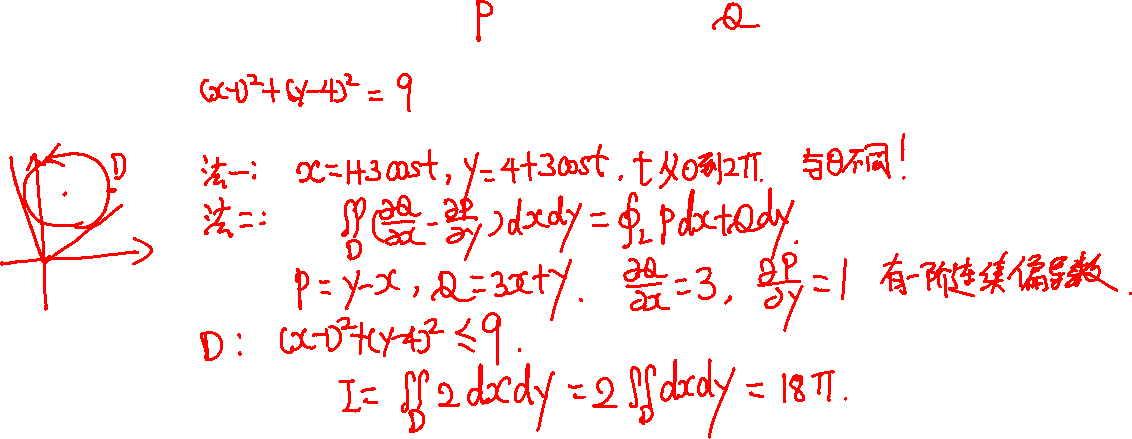 P Q
(x-1)²+(y-4)² = 9
D
法一: x=1+3cost, y=4+3cost, t从0到2π. 与θ不同!
法二: ∬_D (∂Q/∂x - ∂P/∂y) dxdy = ∮_L Pdx+Qdy.
P = y-x, Q=3x+y. ∂Q/∂x=3, ∂P/∂y=1 有一阶连续偏导数.
D: (x-1)²+(y-4)² ≤ 9.
I= ∬_D 2 dxdy = 2 ∬_D dxdy = 18π.